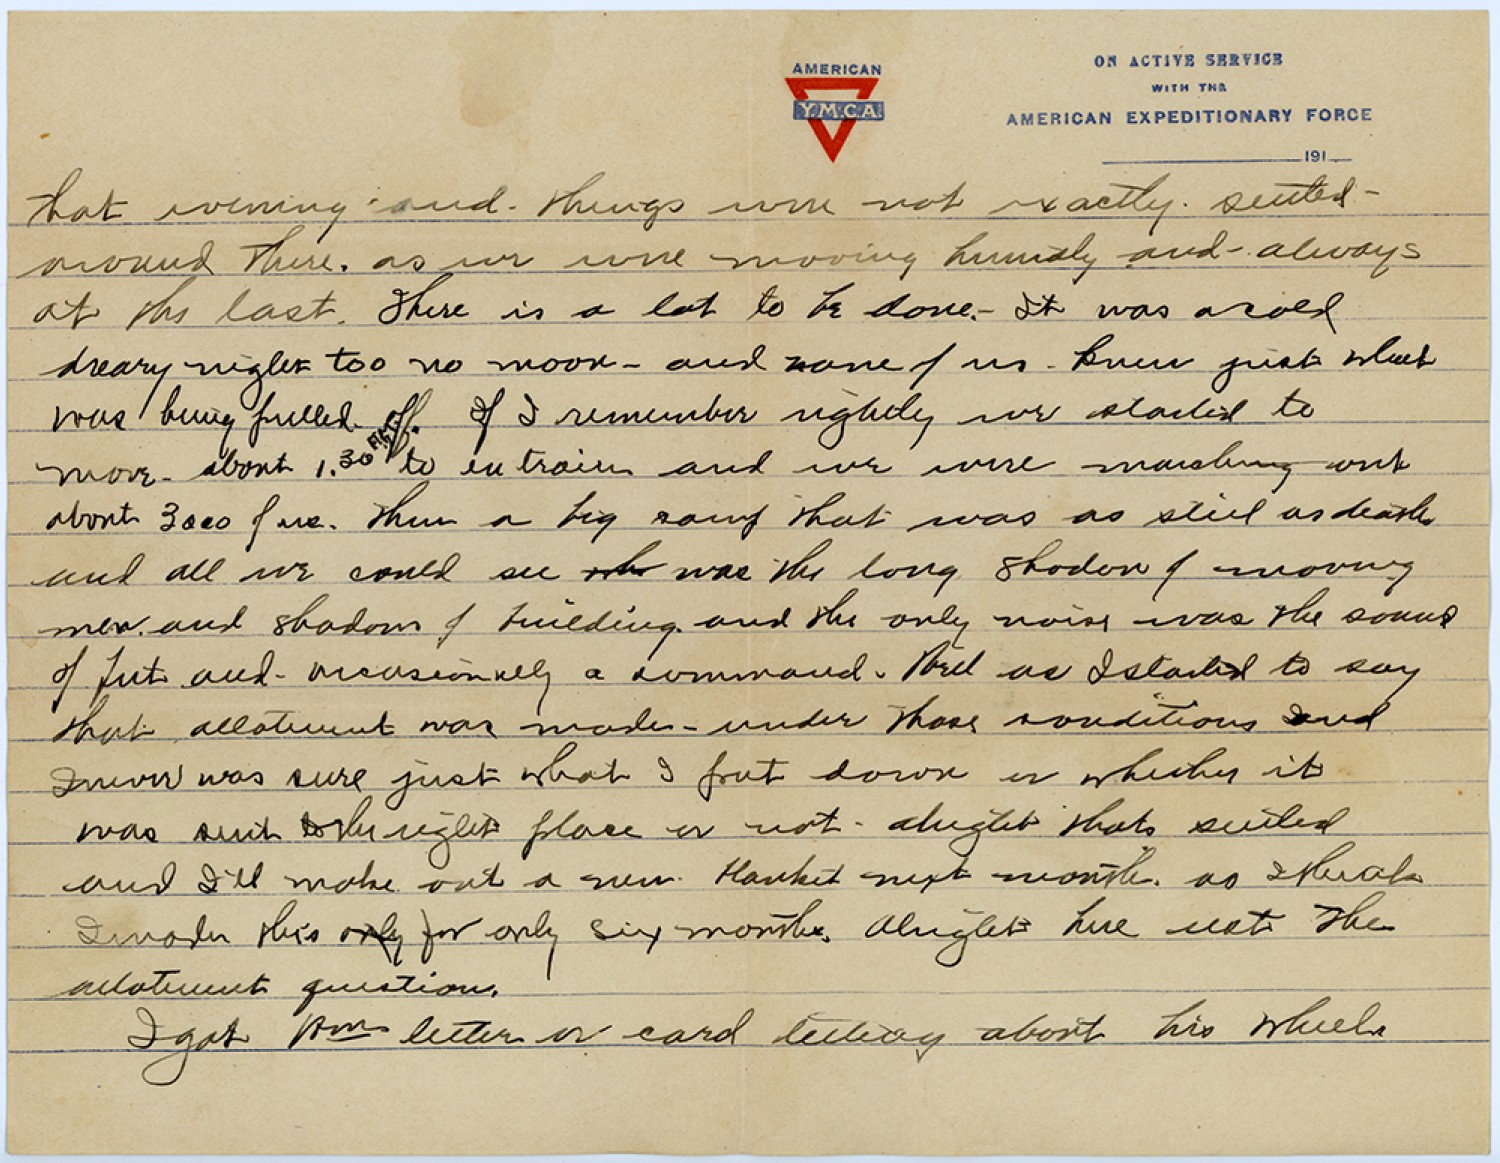 AMERICAN
Y.M.C.A.
ON ACTIVE SERVICE
WITH THE
AMERICAN EXPEDITIONARY FORCE
191
that evening and things were not exactly settled
around there. as we were moving and always
at the last. There is a lot to be done. It was a cold
dreary night too no moon and none of us knew just what
was being pulled off. If I remember rightly we started to
move about 1.30 A.M. to entrain and we were marching out
about 3000 of us. thru a big camp that was as still as death
and all we could see was the long shadow of moving
men. and shadows of building. and the only noise was the sound
of feet and occasionally a command. Well as I started to say
that allotment was made under those conditions and
I never was sure just what I put down or whether it
was sent to the right place or not. alright thats settled
and I'll make out a new next month. as I think
I made this only for only six months. Alright here rests the
allotment question.
I got Wms letter or card telling about his wheel